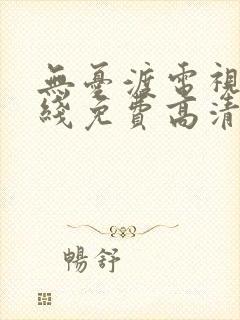 無憂渡電視
綫免費高清
暢舒